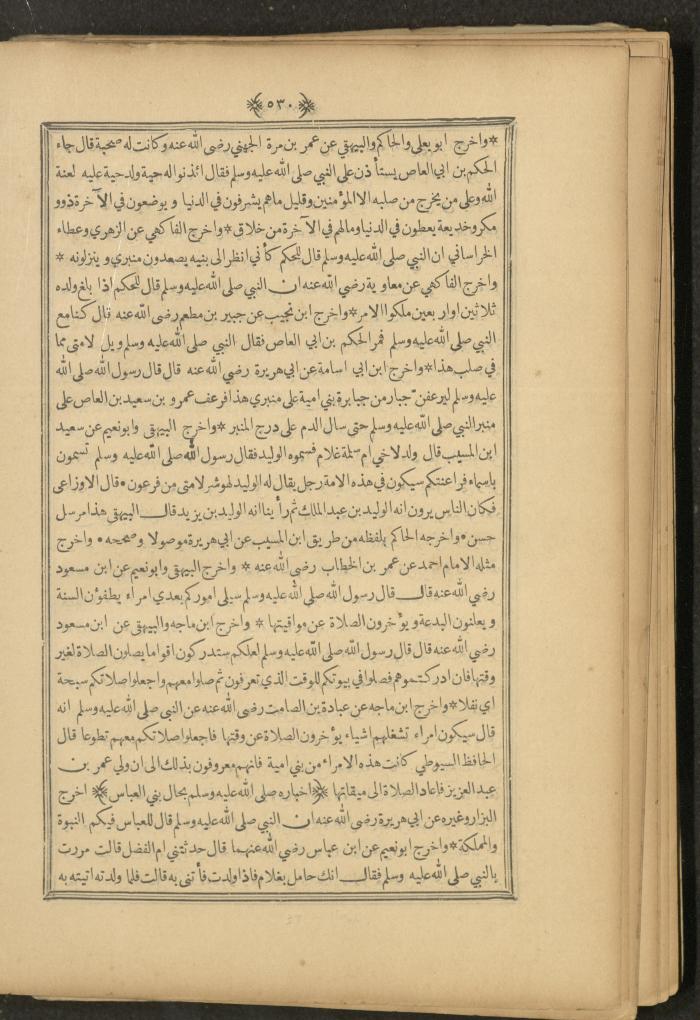 ﴿٥٣٠﴾
* واخرج ابو يعلى والحاكم والبيهقي عن عمر بن مرة الجهني رضى الله عنه وكانت له صحبة قال جاء
الحكم بن ابي العاص يستأذن على النبي صلى الله عليه وسلم فقال ائذنوا له حية ولد حية عليه لعنة
الله وعلى من يخرج من صلبه الا المؤمنين وقليل ماهم يشرفون في الدنيا و يوضعون في الآخرة ذوو
مكر وخديعة يعطون في الدنيا ومالهم في الآخرة من خلاق * واخرج الفاكهي عن الزهري وعطاء
الخراساني ان النبي صلى الله عليه وسلم قال للحكم كأني انظر الى بنيه يصعدون منبري و ينزلونه *
واخرج الفاكهي عن معاوية رضى الله عنه ان النبي صلى الله عليه وسلم قال للحكم اذا بلغ ولده
ثلاثين او اربعين ملكوا الامر * واخرج ابن نجيب عن جبير بن مطعم رضى الله عنه قال كنا مع
النبي صلى الله عليه وسلم فمر الحكم بن ابي العاص فقال النبي صلى الله عليه وسلم ويل لامتى مما
في صلب هذا * واخرج ابن ابي اسامة عن ابي هريرة رضي الله عنه قال قال رسول الله صلى الله
عليه وسلم ليرعفن جبار من جبابرة بني امية على منبري هذا فرعف عمرو بن سعيد بن العاص على
منبر النبي صلى الله عليه وسلم حتى سال الدم على درج المنبر * واخرج البيهقي وابو نعيم عن سعيد
ابن المسيب قال ولد لاخي ام سلمة غلام فسموه الوليد فقال رسول الله صلى الله عليه وسلم تسمون
باسماء فراعنتكم سيكون في هذه الامة رجل يقال له الوليد لهو شر لامتى من فرعون * قال الاوزاعى
فكان الناس يرون انه الوليد بن عبد الملك ثم رأينا انه الوليد بن يزيد قال البيهقي هذا مرسل
حسن * واخرجه الحاكم بلفظه من طريق ابن المسيب عن ابي هريرة موصولا وصححه * واخرج
مثله الامام احمد عن عمر بن الخطاب رضى الله عنه * واخرج البيهقي وابو نعيم عن ابن مسعود
رضي الله عنه قال قال رسول الله صلى الله عليه وسلم سيلى اموركم بعدي امراء يطفؤن السنة
و يعلنون البدعة و يؤخرون الصلاة عن مواقيتها * واخرج ابن ماجه والبيهقي عن ابن مسعود
رضي الله عنه قال قال رسول الله صلى الله عليه وسلم لعلكم ستدركون اقواما يصلون الصلاة لغير
وقتها فان ادركتموهم فصلوا في بيوتكم للوقت الذي تعرفون ثم صلوا معهم واجعلوا صلاتكم سبحة
اي نفلا * واخرج ابن ماجه عن عبادة بن الصامت رضى الله عنه عن النبي صلى الله عليه وسلم انه
قال سيكون امراء تشغلهم اشياء يؤخرون الصلاة عن وقتها فاجعلوا صلاتكم معهم تطوعا قال
الحافظ السيوطي كانت هذه الامراء من بني امية فانهم معروفون بذلك الى ان ولي عمر بن
عبد العزيز فاعاد الصلاة الى ميقاتها ﴿اخباره صلى الله عليه وسلم بحال بني العباس﴾ اخرج
البزار وغيره عن ابي هريرة رضى الله عنه ان النبي صلى الله عليه وسلم قال للعباس فيكم النبوة
والمملكة * واخرج ابو نعيم عن ابن عباس رضي الله عنهما قال حدثتني ام الفضل قالت مررت
بالنبي صلى الله عليه وسلم فقال انك حامل بغلام فاذا ولدت فأتنى به قالت فلما ولدته اتيته به